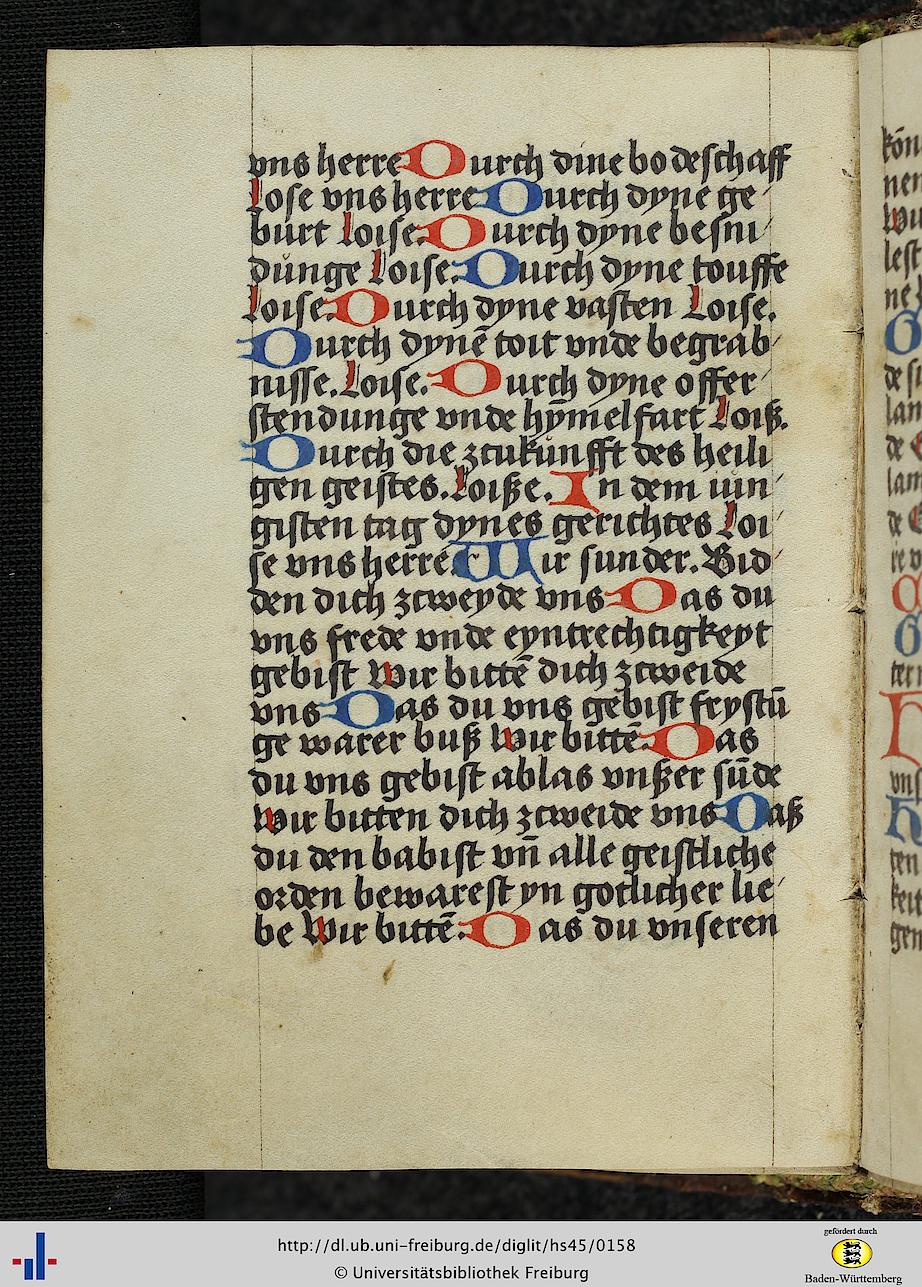 vns herre Durch dine bodeschaff
Lose vns herre Durch dyne ge
burt Loise. Durch dyne besni
dunge Loise. Durch dyne touffe
Loise. Durch dyne vasten Loise.
Durch dynē toit vnde begrab
nisse. Loise. Durch dyne offer
stendunge vnde hymelfart Loiß.
Durch die zcukunfft des heili
gen geistes. Loiße. In dem iun
gisten tag dynes gerichtes Loi
se vns herre. Wir sunder. Bid
den dich zcweyde vns Das du
vns frede vnde eyntrechtigkeyt
gebist Wir bittē dich zcweide
vns Das du vns gebist frystū
ge warer buß Wir bittē. Das
du vns gebist ablas vnßer sūde
Wir bitten dich zcweide vns Daß
du den babist vn̄ alle geistliche
orden bewarest yn gotlicher lie
be Wir bittē. Das du vnseren
kön
nen
lest
ne
de
lan
de
lam
de
ten
keit
gen
http://dl.ub.uni-freiburg.de/diglit/hs45/0158
© Universitätsbibliothek Freiburg
gefördert durch
Baden-Württemberg